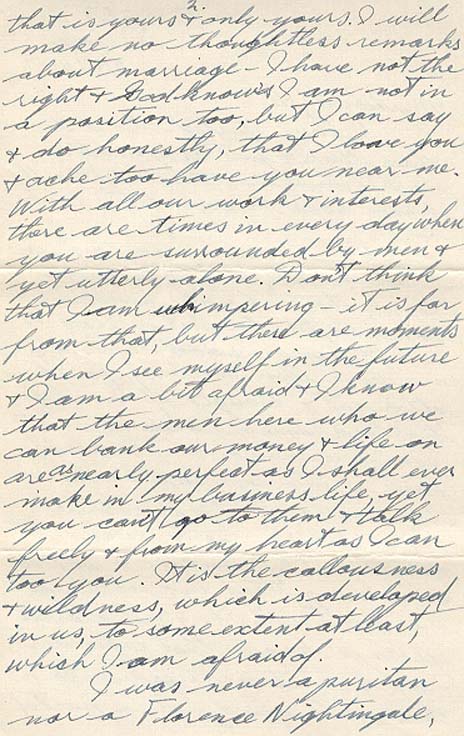 2.
that is yours & only yours. I will
make no thoughtless remarks
about marriage - I have not the
right & God knows I am not in
a position too, but I can say
& do honestly, that I love you
& ache too have you near me.
With all our work & interests,
there are times in every day when
you are surrounded by men &
yet utterly alone. Don't think
that I am whimpering - it is far
from that, but there are moments
when I see myself in the future
& I am a bit afraid & I know
that the men here who we
can bank our money & life on
are as nearly perfect as I shall ever
make in my business life, yet
you can't go to them & talk
freely & from my heart as I can
too you. It is the callousness
& wildness, which is developed
in us, to some extent at least,
which I am afraid of.
I was never a puritan
nor a Florence Nightingale,